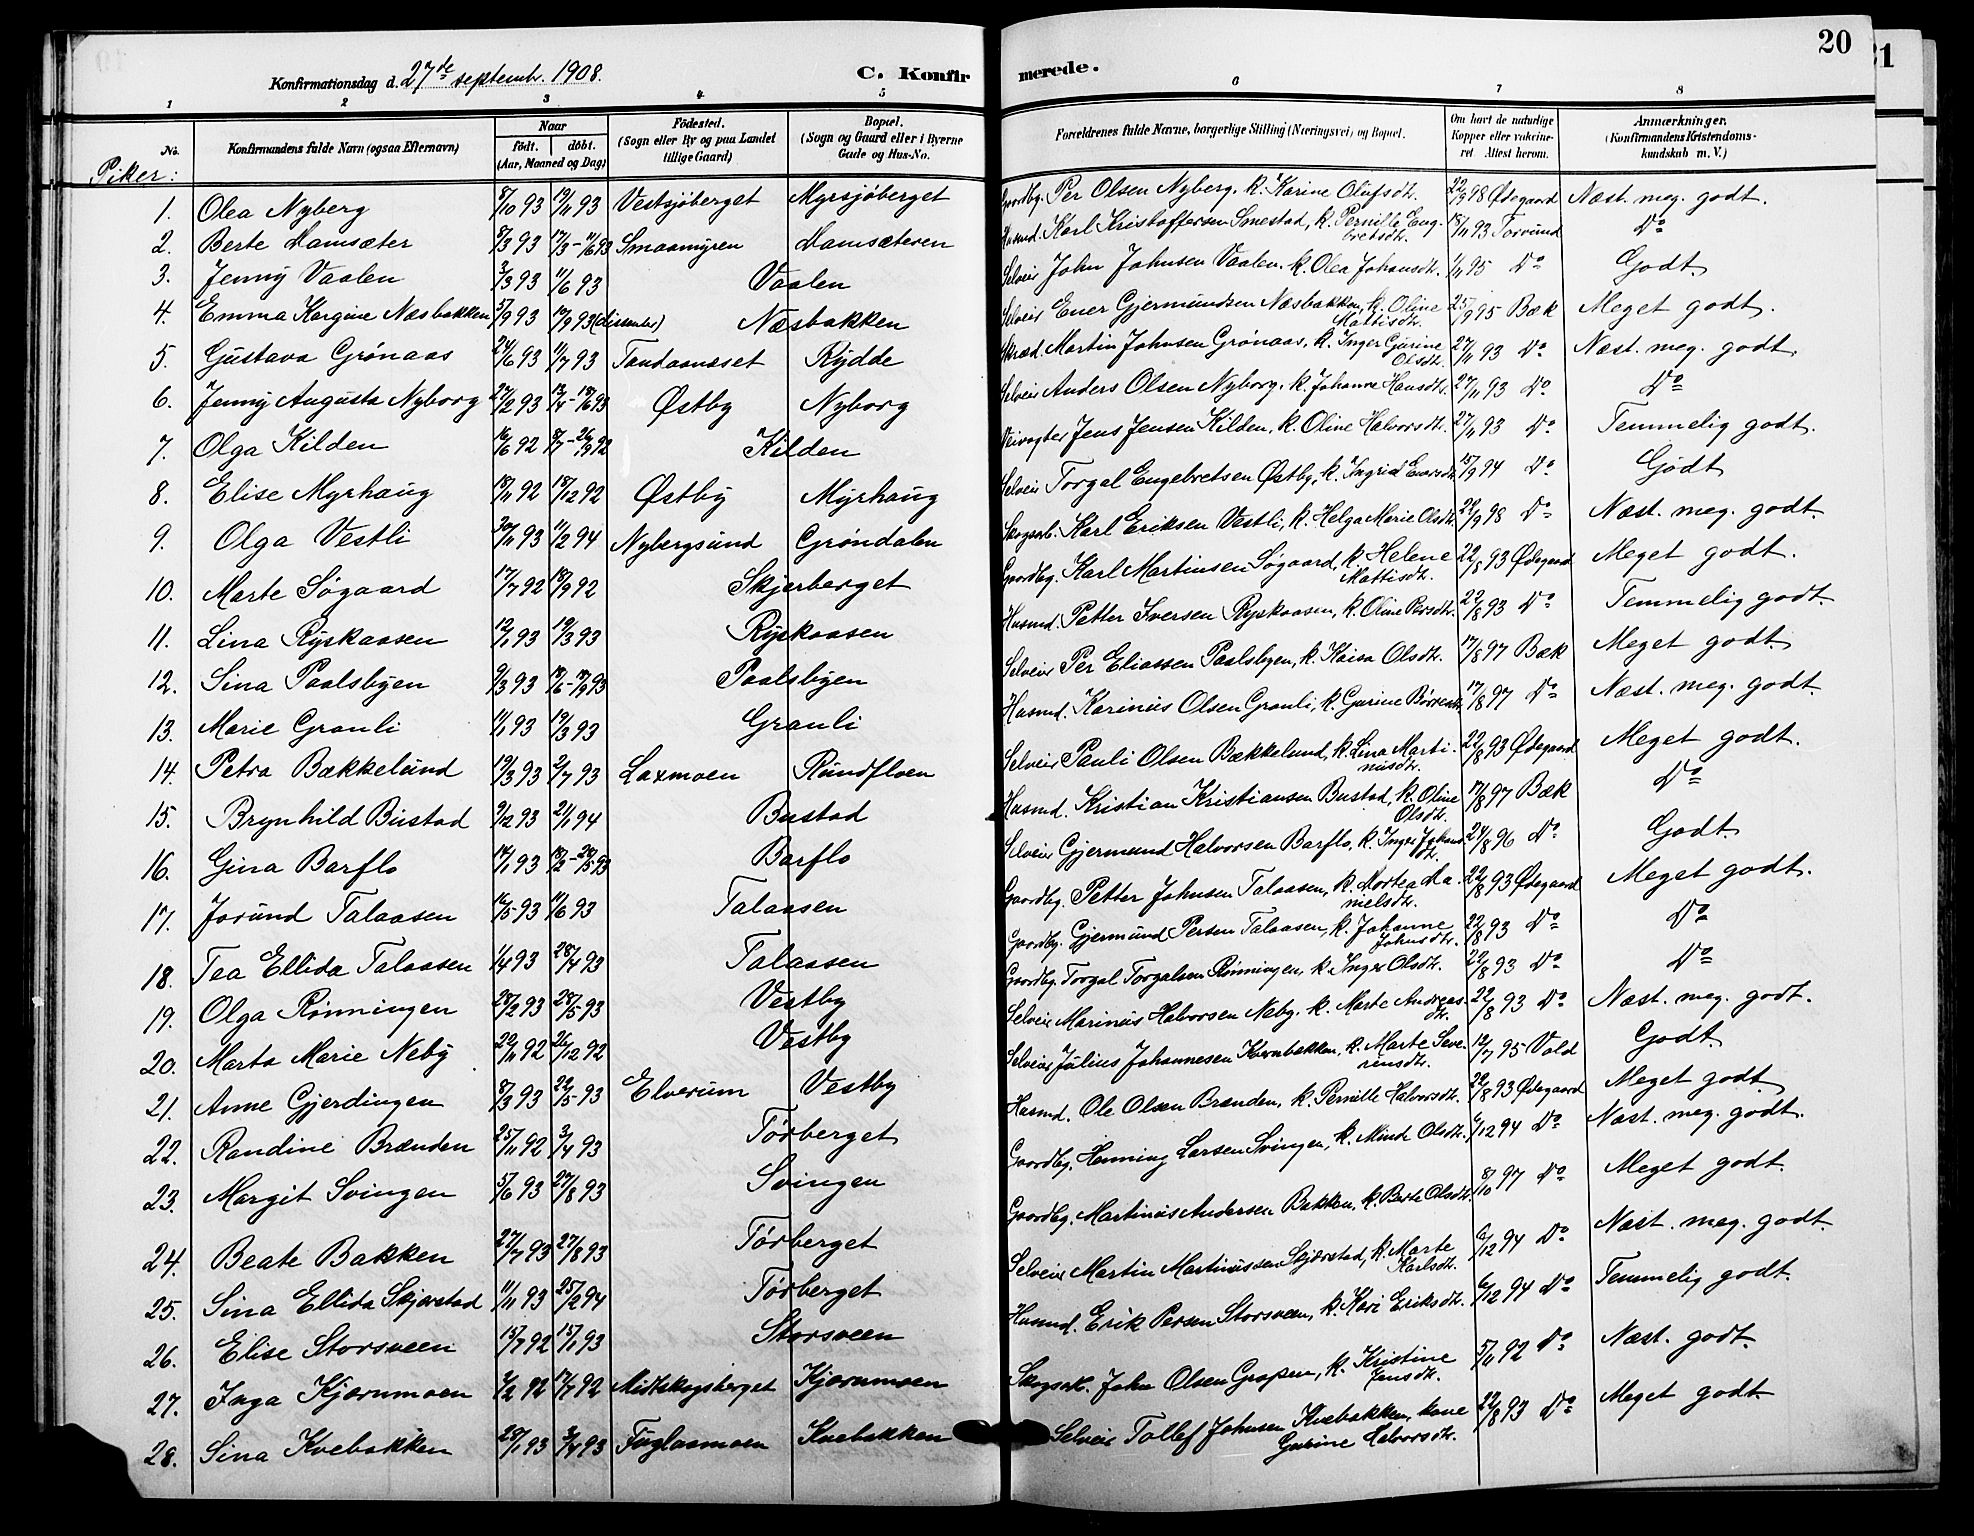 20
21
Konfirmationsdag d. 27de septembr. 1908.
C. Konfirmerede.
1 2 3 4 5 6 7 8
No. Konfirmandens fulde Navn (ogsaa Efternavn) Naar födt. döbt. (Aar, Maaned og Dag) Födested. (Sogn eller By og paa Landet tillige Gaard) Bopæl. (Sogn og Gaard eller i Byerne Gade og Hus-No. Forældrenes fulde Navne, borgerlige Stilling (Næringsvei) og Bopæl. Om havt de naturlige Kopper eller vakcineret Attest herom. Anmærkninger. (Konfirmandens Kristendomskundskab m. V.)
Piker:
1. Olea Nyberg 8/10 93 19/11 93 Vestsjöberget Myrsjöberget Gaardbg. Per Olsen Nyberg, k. Karine Olufsdt. 22/9 98 Ødegaard Næst. meg. godt.
2. Berte Hamsæter 8/3 93 Smaamyren Hamsæteren Husmd. Karl Kristoffersen Smestad, k. Pernille Engbretsdt. 18/11 93 Torvund Do
3. Jenny Vaalen 3/3 93 11/6 93 Vaalen Selveir John Johnsen Vaalen, k. Olea Johansdt. 1/11 95 Do Godt
4. Emma Kargine Næsbakken 5/9 93 (dissenter) Næsbakken Selveir Ener Gjermundsen Næsbakken, k. Oline Mattisdt. 25/9 95 Bæk Meget godt.
5. Gustava Grønaas 24/6 93 11/7 93 Tandaanæset Rydde Martin Johnsen Grønaas, k. Inger Gurine Olsdt. 27/11 93 Do Næst. meg. godt.
6. Jenny Augusta Nyborg 27/2 93 Østby Nyborg Selveir Anders Olsen Nyborg, k. Johanne Hansdt. 27/11 93 Do Do
7. Olga Kilden 16/6 92 Kilden Veivogter Jens Jensen Kilden, k. Oline Halvorsdt. 27/11 93 Do Temmelig godt.
8. Elise Myrhaug 18/11 92 18/12 92 Østby Myrhaug Selveir Torgal Engebretsen Østby, k. Ingrid Enersdt. 15/9 94 Do Godt
9. Olga Vestli 30/11 93 11/2 94 Nybergsund Grøndalen Skogsarb. Karl Eriksen Vestli, k. Helga Marie Olsdt. 22/9 98 Do Næst. meg. godt.
10. Marte Søgaard 17/7 92 18/9 92 Skjerberget Gaardbg. Karl Martinsen Søgaard, k. Helene Mattisdt. 22/8 93 Ødegaard Meget godt.
11. Lina Ryskaasen 12/1 93 19/3 93 Ryskaasen Husmd. Petter Iversen Ryskaasen, k. Oline Persdt. 22/8 93 Do Temmelig godt.
12. Sina Paalsbyen 9/3 93 Paalsbyen Selveir Per Eliassen Paalsbyen, k. Kaisa Olsdt. 17/8 97 Bæk Meget godt.
13. Marie Granli 11/1 93 19/3 93 Granli Husmd. Karinus Olsen Granli, k. Gurine 17/8 97 Do Næst. meg. godt.
14. Petra Bækkelund 19/3 93 2/7 93 Laxmoen Rundfloen Selveir Pauli Olsen Bækkelund, k. Lina Martinusdt. 22/8 93 Ødegaard Meget godt.
15. Brynhild Bustad 9/12 93 21/1 94 Bustad Husmd. Kristian Kristiansen Bustad, k. Oline Olsdt. 17/8 97 Bæk Do
16. Gina Barflo 14/1 93 Barflo Selveir Gjermund Halvorsen Barflo, k. Inger Johansdt. 24/8 96 Do Godt
17. Jorund Talaasen 16/5 93 11/6 93 Talaasen Gaardbg. Petter Johnsen Talaasen, k. Mortea Danielsdt. 22/8 93 Ødegaard Meget godt.
18. Tea Ellida Talaasen 1/4 93 28/4 93 Talaasen Gaardbg. Gjermund Persen Talaasen, k. Johanne Johnsdt. 22/8 93 Do Do
19. Olga Rønningen 28/2 93 28/5 93 Vestby Gaardbg. Torgal Torgalsen Rønningen, k. Inger Olsdt. 22/8 93 Do Do
20. Marta Marie Neby 22/11 92 26/12 92 Vestby Selveir Marinus Halvorsen Neby, k. Marte Andreasdt. 22/8 93 Do Næst. meg. godt.
21. Anne Gjerdingen 8/3 93 22/5 93 Elverum Vestby Selveir Julius Johannesen Kvernbakken, k. Marte Severinsdt. 12/7 95 Vold Godt
22. Randine Brænden 25/11 92 3/4 93 Törberget Husmd. Ole Olsen Brænden, k. Pernille Halvorsdt. 22/8 93 Ødegaard Meget godt
23. Margit Svingen 5/6 93 27/8 93 Svingen Gaardbg. Henning Larsen Svingen, k. Minde Olsdt. 6/12 94 Do Næst. meg. godt.
24. Beate Bakken 27/7 93 27/8 93 Törberget Gaardbg. Martinus Andersen Bakken, k. Berte Olsdt. 8/10 97 Do Meget godt.
25. Sina Ellida Skjærstad 11/11 93 25/2 94 Törberget Selveir Martin Martinussen Skjærstad, k. Marte Karlsdt. 6/12 94 Do Næst. meg. godt.
26. Elise Storsveen 15/7 92 15/1 93 Storsveen Husmd. Erik Persen Storsveen, k. Kari Eriksdt. 6/12 94 Do Temmelig godt.
27. Inga Kjærnmoen 92 17/7 92 Midtskogsberget Kjærnmoen Skogsarb. John Olsen Grasen, k. Kristine Jensdt. 5/11 92 Do Næst. godt.
28. Sina Kvebakken 29/1 93 3/4 93 Fuglaamoen Kvebakken Selveir Tollef Johnsen Kvebakken, kone Gurine Halvorsdt. 22/8 93 Do Meget godt